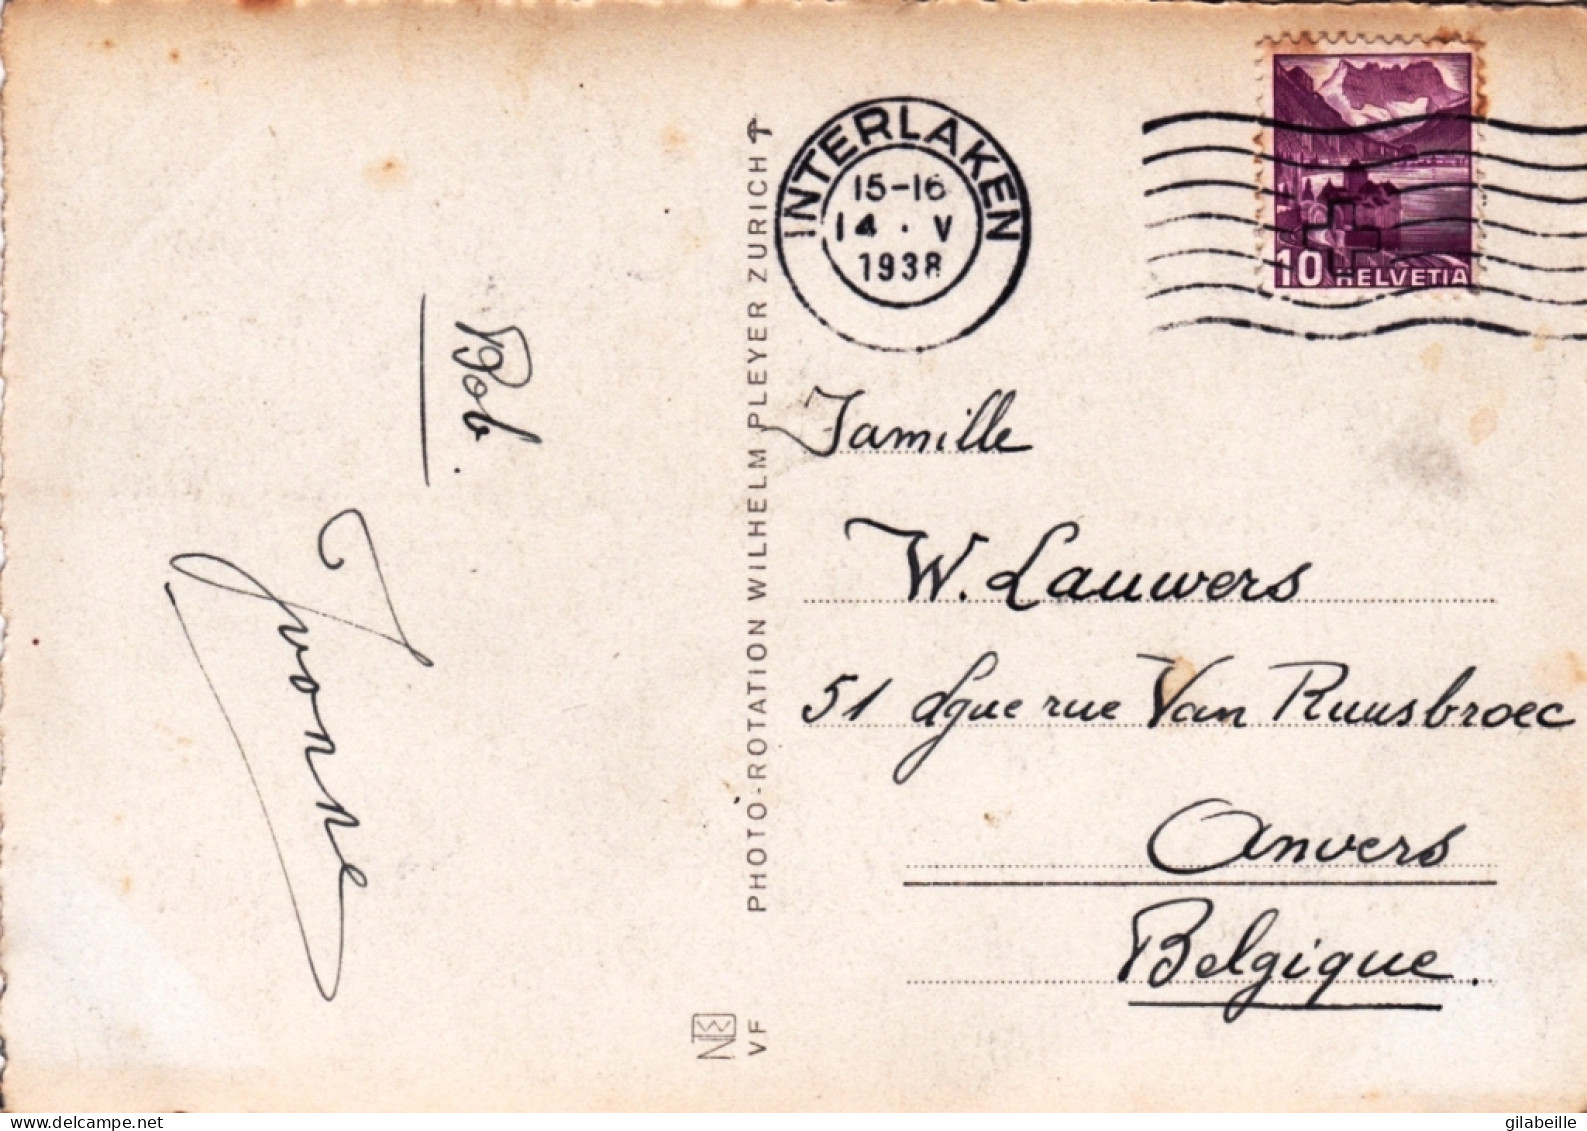 Bob.
Yvonne
PHOTO-ROTATION WILHELM PLEYER ZURICH
VF
INTERLAKEN
15-16
14 · V
1938
10 HELVETIA
Famille
W. Lauwers
51 lgue rue Van Ruusbroec
Anvers
Belgique.
gilabeille